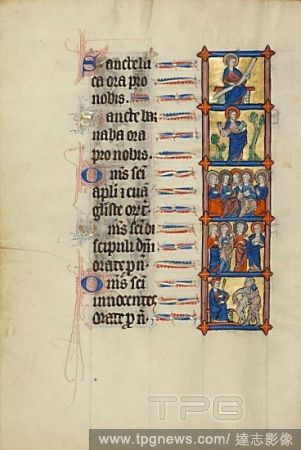 Sancte lu
ca ora pro
nobis.
Sancte bar
naba ora
pro nobis.
Oms sci
apli ⁊ euan
gliste orte
Oms sci di
scipuli dni
orate p n.
Oms sci
innocentes
orate p n.
TPG
www.tpgnews.com/達志影像